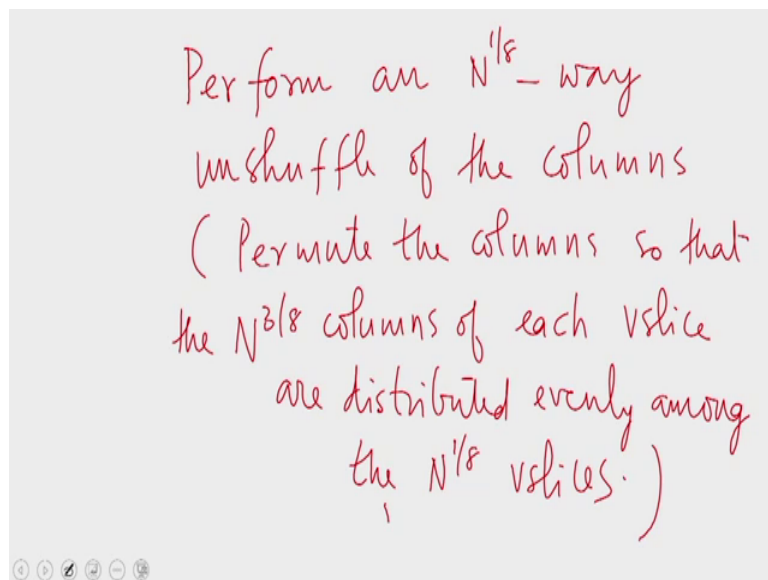 Perform an N^1/8 - way
unshuffle of the columns
(Permute the columns so that
the N^3/8 columns of each vslice
are distributed evenly among
the N^1/8 vslices.)